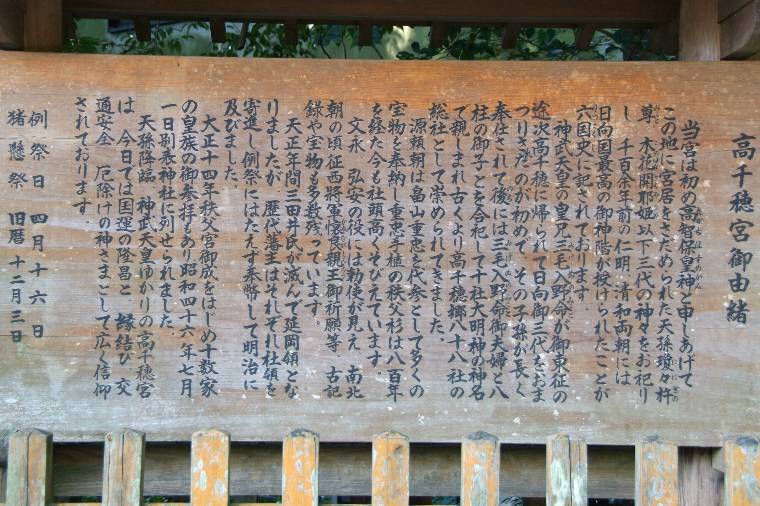 高千穂宮御由緒
当宮は初め高智保皇神と申しあげて
この地に宮居をさだめられた天孫瓊々杵
尊、木花開耶姫以下三代の神々をお祀り
し 千百余年前の仁明 清和両朝には
日向国最高の御神階が授けられたことが
六国史に記されております
神武天皇の皇兄三毛入野命が御東征の
途次高千穂に帰られて日向御三代をおま
つりされたのが初めで その子孫が長く
奉仕されて後には三毛入野命御夫婦と八
柱の御子とを合祀して十社大明神の神名
で親しまれ古くより高千穂郷八十八社の
総社として崇められてきました。
源頼朝は畠山重忠を代参として多くの
宝物を奉納し重忠手植の秩父杉は八百年
を経た今も社頭高くそびえています。
文永 弘安の役には勅使が見え 南北
朝の頃征西将軍懐良親王御祈願等、古記
録や宝物も多数残っています。
天正年間三田井氏が滅んで延岡領とな
りましたが 歴代藩主はそれぞれ社領を
寄進し例祭にはたえず奉幣して明治に
及びました。
大正十四年秩父宮御成をはじめ十数家
の皇族の御参拝もあり昭和四十六年七月
一日別表神社に列せられました
天孫降臨 神武天皇ゆかりの高千穂宮
は 今日では国運の隆昌と 縁結び 交
通安全 厄除けの神さまとして広く信仰
されております。
例祭日 四月十六日
猪懸祭 旧暦 十二月三日